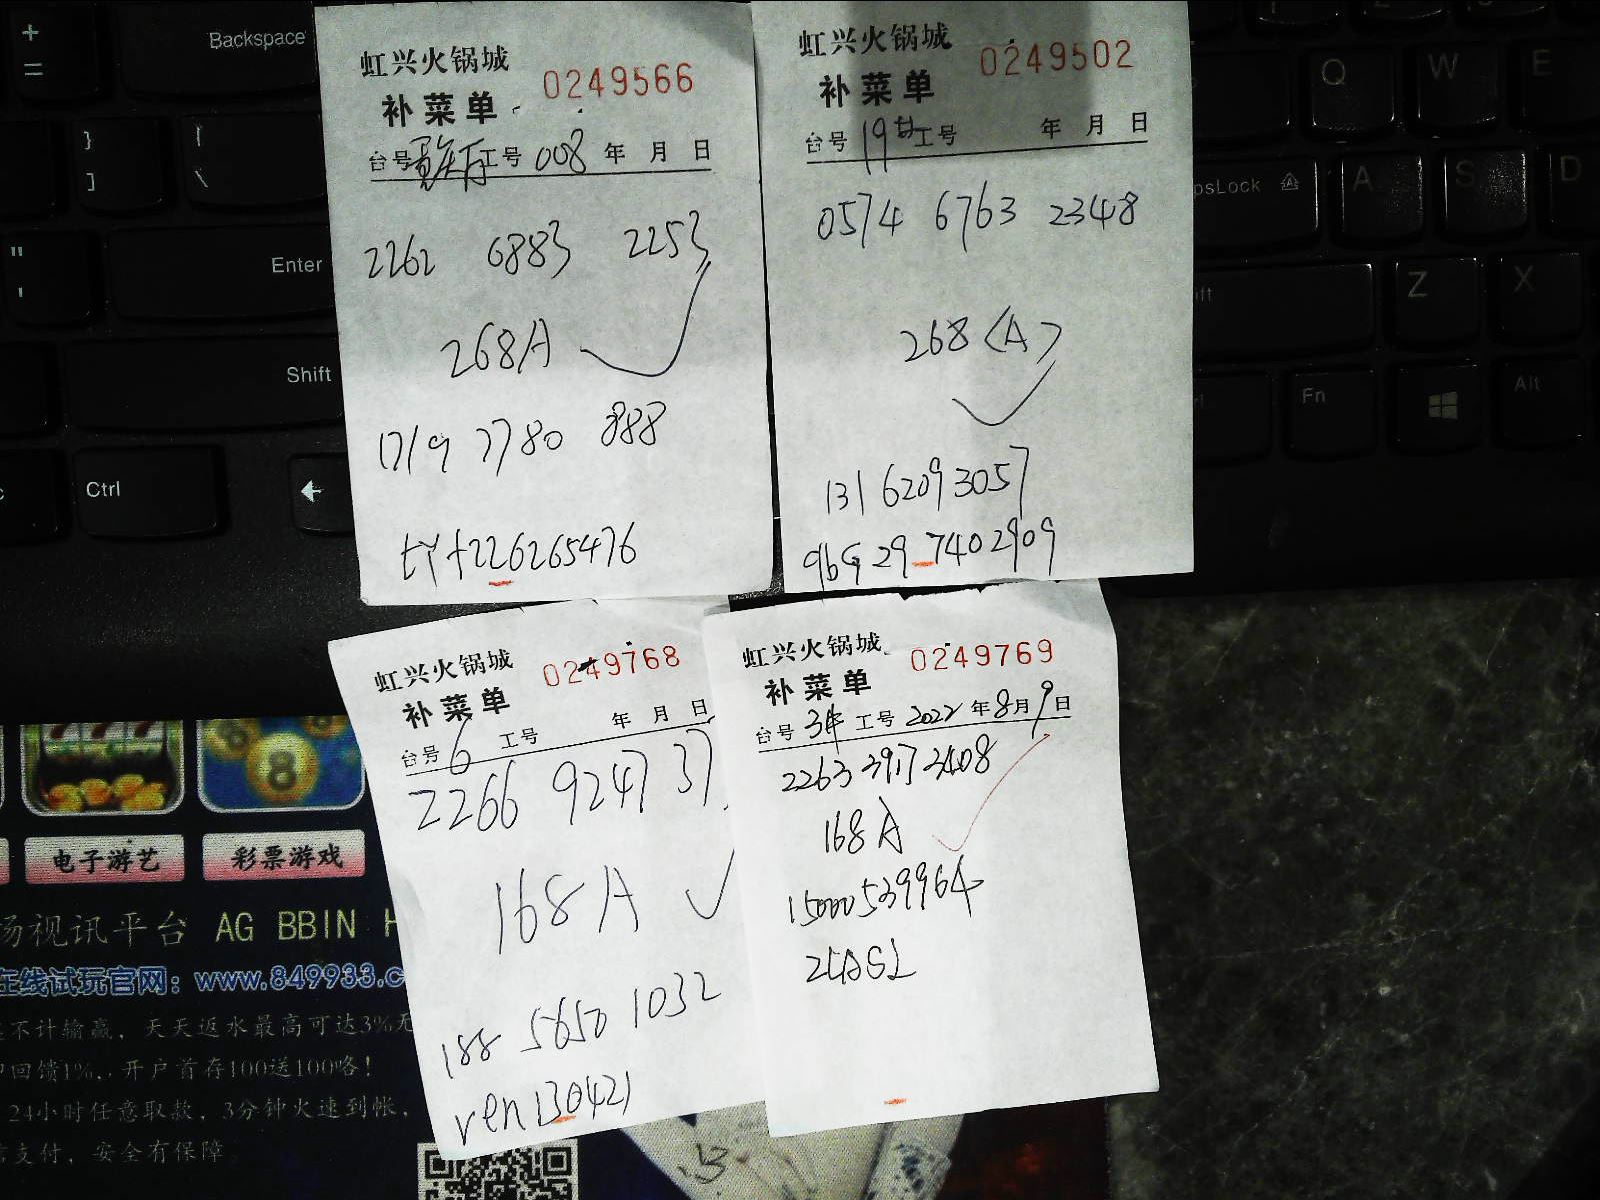 +
=
Backspace
}
]
{
\
"
'
Enter
Shift
Ctrl
虹兴火锅城 0249566
补菜单
台号 工号 008 年 月 日
2262 6883 2253
268A
1719 7780 888
tyt226265476
虹兴火锅城 0249502
补菜单
台号 19 工号 年 月 日
0574 6763 2348
268<A>
131 6209 3057
9bG 29 7402909
Q
W
E
psLock
A
S
D
Z
X
Fn
Alt
虹兴火锅城 0249768
补菜单
台号 6 工号 年 月 日
2266 9247 37
168A
188 5650 1032
ren130421
虹兴火锅城 0249769
补菜单
台号 工号 2022 年 8 月 9 日
2263 3917 3408
168 A
15000539964
8
电子游艺
彩票游戏
场视讯平台 AG BBIN H
在线试玩官网：www.849933.c
不计输赢，天天返水最高可达3%无
回馈1%，开户首存100送100咯！
24小时任意取款，3分钟火速到帐，
支付，安全有保障